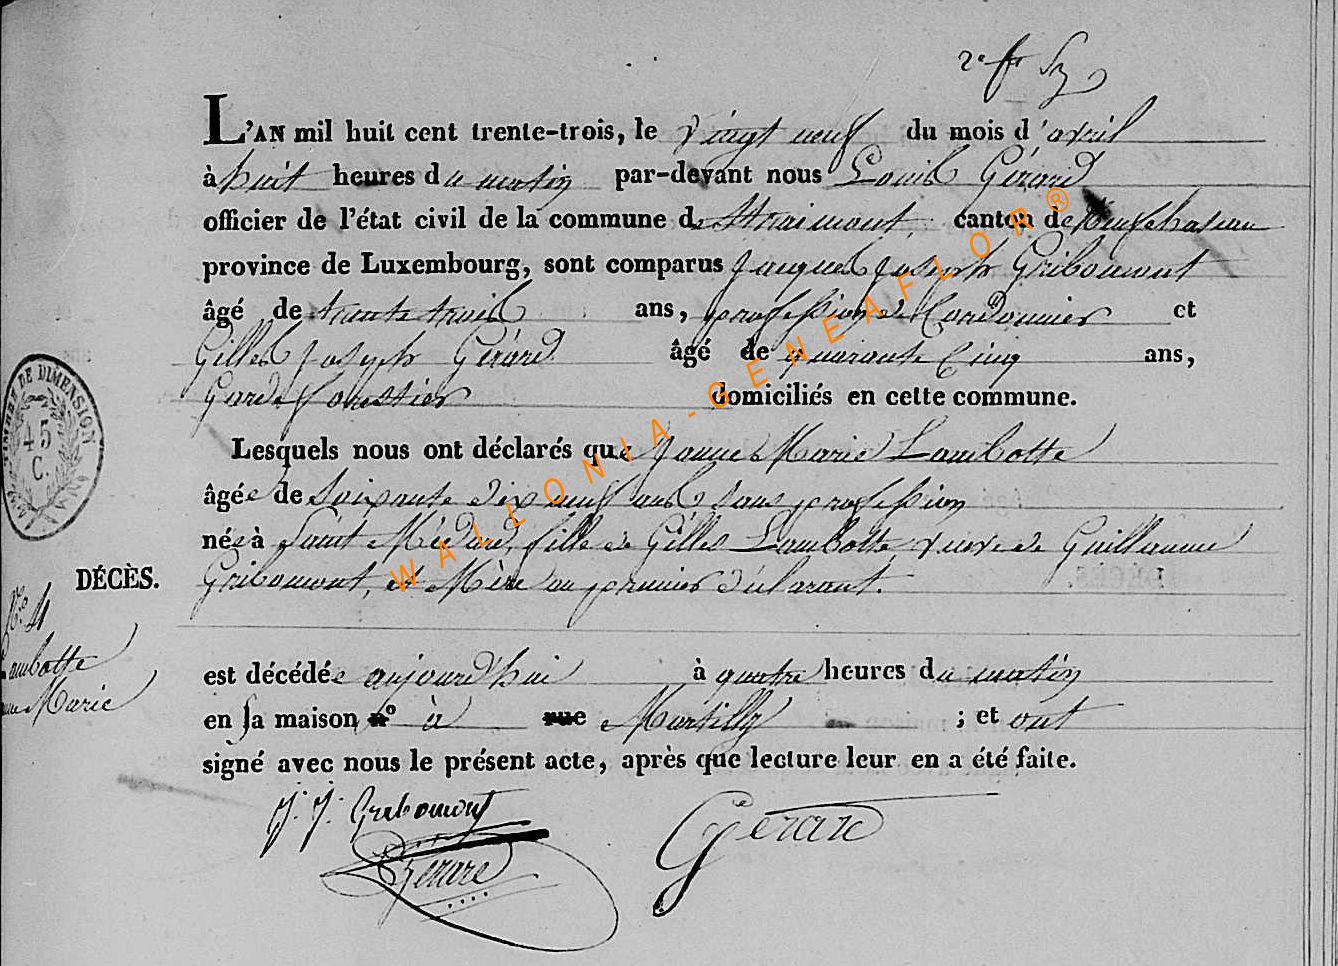 2e fr
L'AN mil huit cent trente-trois, le vingt neuf du mois d'avril
à huit heures du matin par-devant nous Louis Gérard
officier de l'état civil de la commune de Straimont, canton de Neufchateau
province de Luxembourg, sont comparus Jacques Joseph Gribomont
âgé de trente trois ans, profession de Cordonnier et
Gilles Joseph Gérard âgé de quarante Cinq ans,
Garde forestier domiciliés en cette commune.
Lesquels nous ont déclarés que Jeanne Marie Lambotte
âgée de soixante dix neuf ans sans profession
née à Saint Médard, fille de Gilles Lambotte veuve de Guillaume
Gribomont, et Mère au premier déclarant.
DÉCÈS.
No 4
Lambotte
Marie
est décédée aujourd'hui à quatre heures du matin
en sa maison no à rue Martilly ; et ont
signé avec nous le présent acte, après que lecture leur en a été faite.
J. J. Gribomont
Gerard
Gérard
TIMBRE DE DIMENSION
45
C.
WALLONIA-GENEAFLOR®